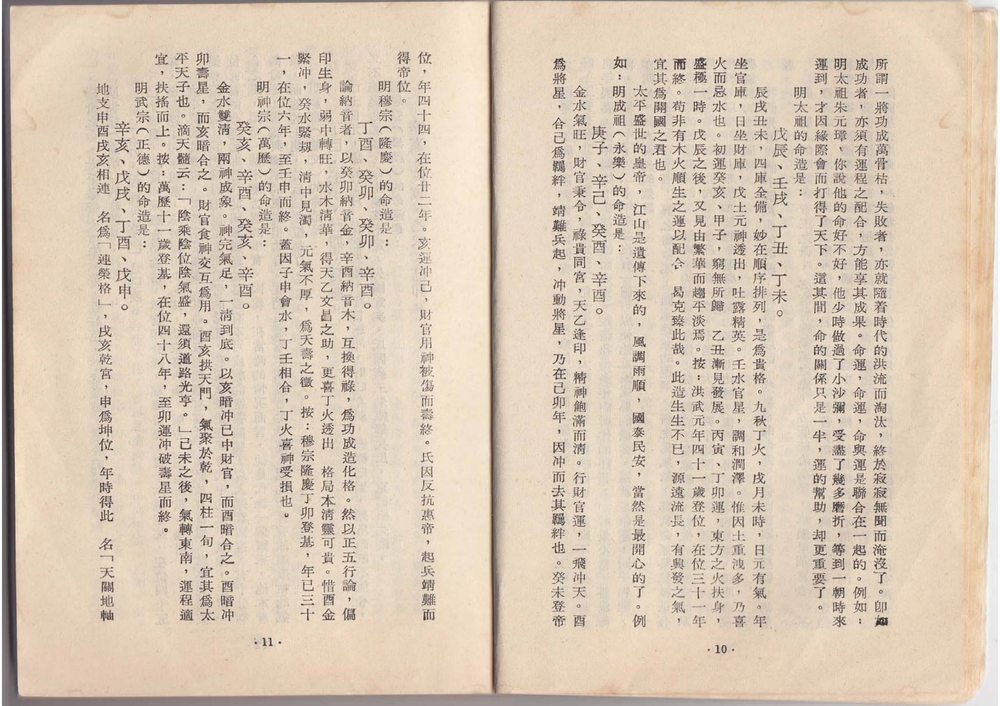 所謂一將功成萬骨枯，失敗者，亦就隨着時代的洪流而淘汰，終於寂寂無聞而淹沒了。卽
成功者，亦須有運程之配合，方能享其成果。命運，命運，命與運是聯合在一起的。例如：
明太祖朱元璋，你說他的命好不好，他少時做過了小沙彌，受盡了幾多磨折，等到一朝時來
運到，才因緣際會而打得了天下。這其間，命的關係只是一半，運的幫助，却更重要了。
明太祖的命造是：
戊辰、壬戌、丁丑、丁未。
辰戌丑未，四庫全備，妙在順序排列，是爲貴格。九秋丁火，戌月未時，日元有氣。年
坐官庫，日坐財庫，戊土元神透出，吐露精英。壬水官星，調和潤澤。惟因土重洩多，乃喜
火而忌水也。初運癸亥、甲子，窮無所歸　乙丑漸見發展。丙寅、丁卯運，東方之火扶身，
盛極一時。戊辰之後，又見由繁華而趨平淡焉。按：洪武元年四十一歲登位，在位三十一年
而終。苟非有木火順生之運以配合　曷克臻此哉。此造生生不已，源遠流長，有興發之氣，
宜其爲開國之君也。
太平盛世的皇帝，江山是遺傳下來的，風調雨順，國泰民安，當然是最開心的了。例
如：明成祖（永樂）的命造是：
庚子、辛巳、癸酉、辛酉。
金水氣旺，財官秉令，祿貴同宮，天乙逢印，精神飽滿而清。行財官運，一飛冲天。酉
爲將星，合己爲羈絆，靖難兵起，冲動將星，乃在己卯年，因冲而去其羈絆也。癸未登帝
·10·
位，年四十四，在位廿二年。亥運冲己，財官用神被傷而壽終。氏因反抗惠帝，起兵靖難而
得帝位。
明穆宗（隆慶）的命造是：
丁酉、癸卯、癸卯、辛酉。
論納音者，以癸卯納音金，辛酉納音木，互換得祿，爲功成造化格。然以正五行論，偏
印生身，弱中轉旺，水木清華，得天乙文昌之助，更喜丁火透出　格局本清靈可貴。惜酉金
緊冲，癸水緊刼，清中見濁，元氣不厚，爲夭壽之徵。按：穆宗隆慶丁卯登基，年已三十
一，在位六年，至壬申而終。蓋因子申會水，丁壬相合，丁火喜神受損也。
明神宗（萬歷）的命造是：
癸亥、辛酉、癸亥、辛酉。
金水雙清，兩神成象。神完氣足，一清到底。以亥暗冲已中財官，而酉暗合之。酉暗冲
卯壽星，而亥暗合之。財官食神交互爲用。酉亥拱天門，氣聚於乾，四柱一旬，宜其爲太
平天子也。滴天髓云：「陰乘陰位陰氣盛，還須道路光亨。」己未之後，氣轉東南，運程適
宜，扶搖而上。按：萬歷十一歲登基，在位四十八年，至卯運冲破壽星而終。
明武宗（正德）的命造是：
辛亥、戊戌、丁酉、戊申。
地支申酉戌亥相連　名爲「連榮格」，戌亥乾宮，申爲坤位，年時得此　名「天關地軸
·11·